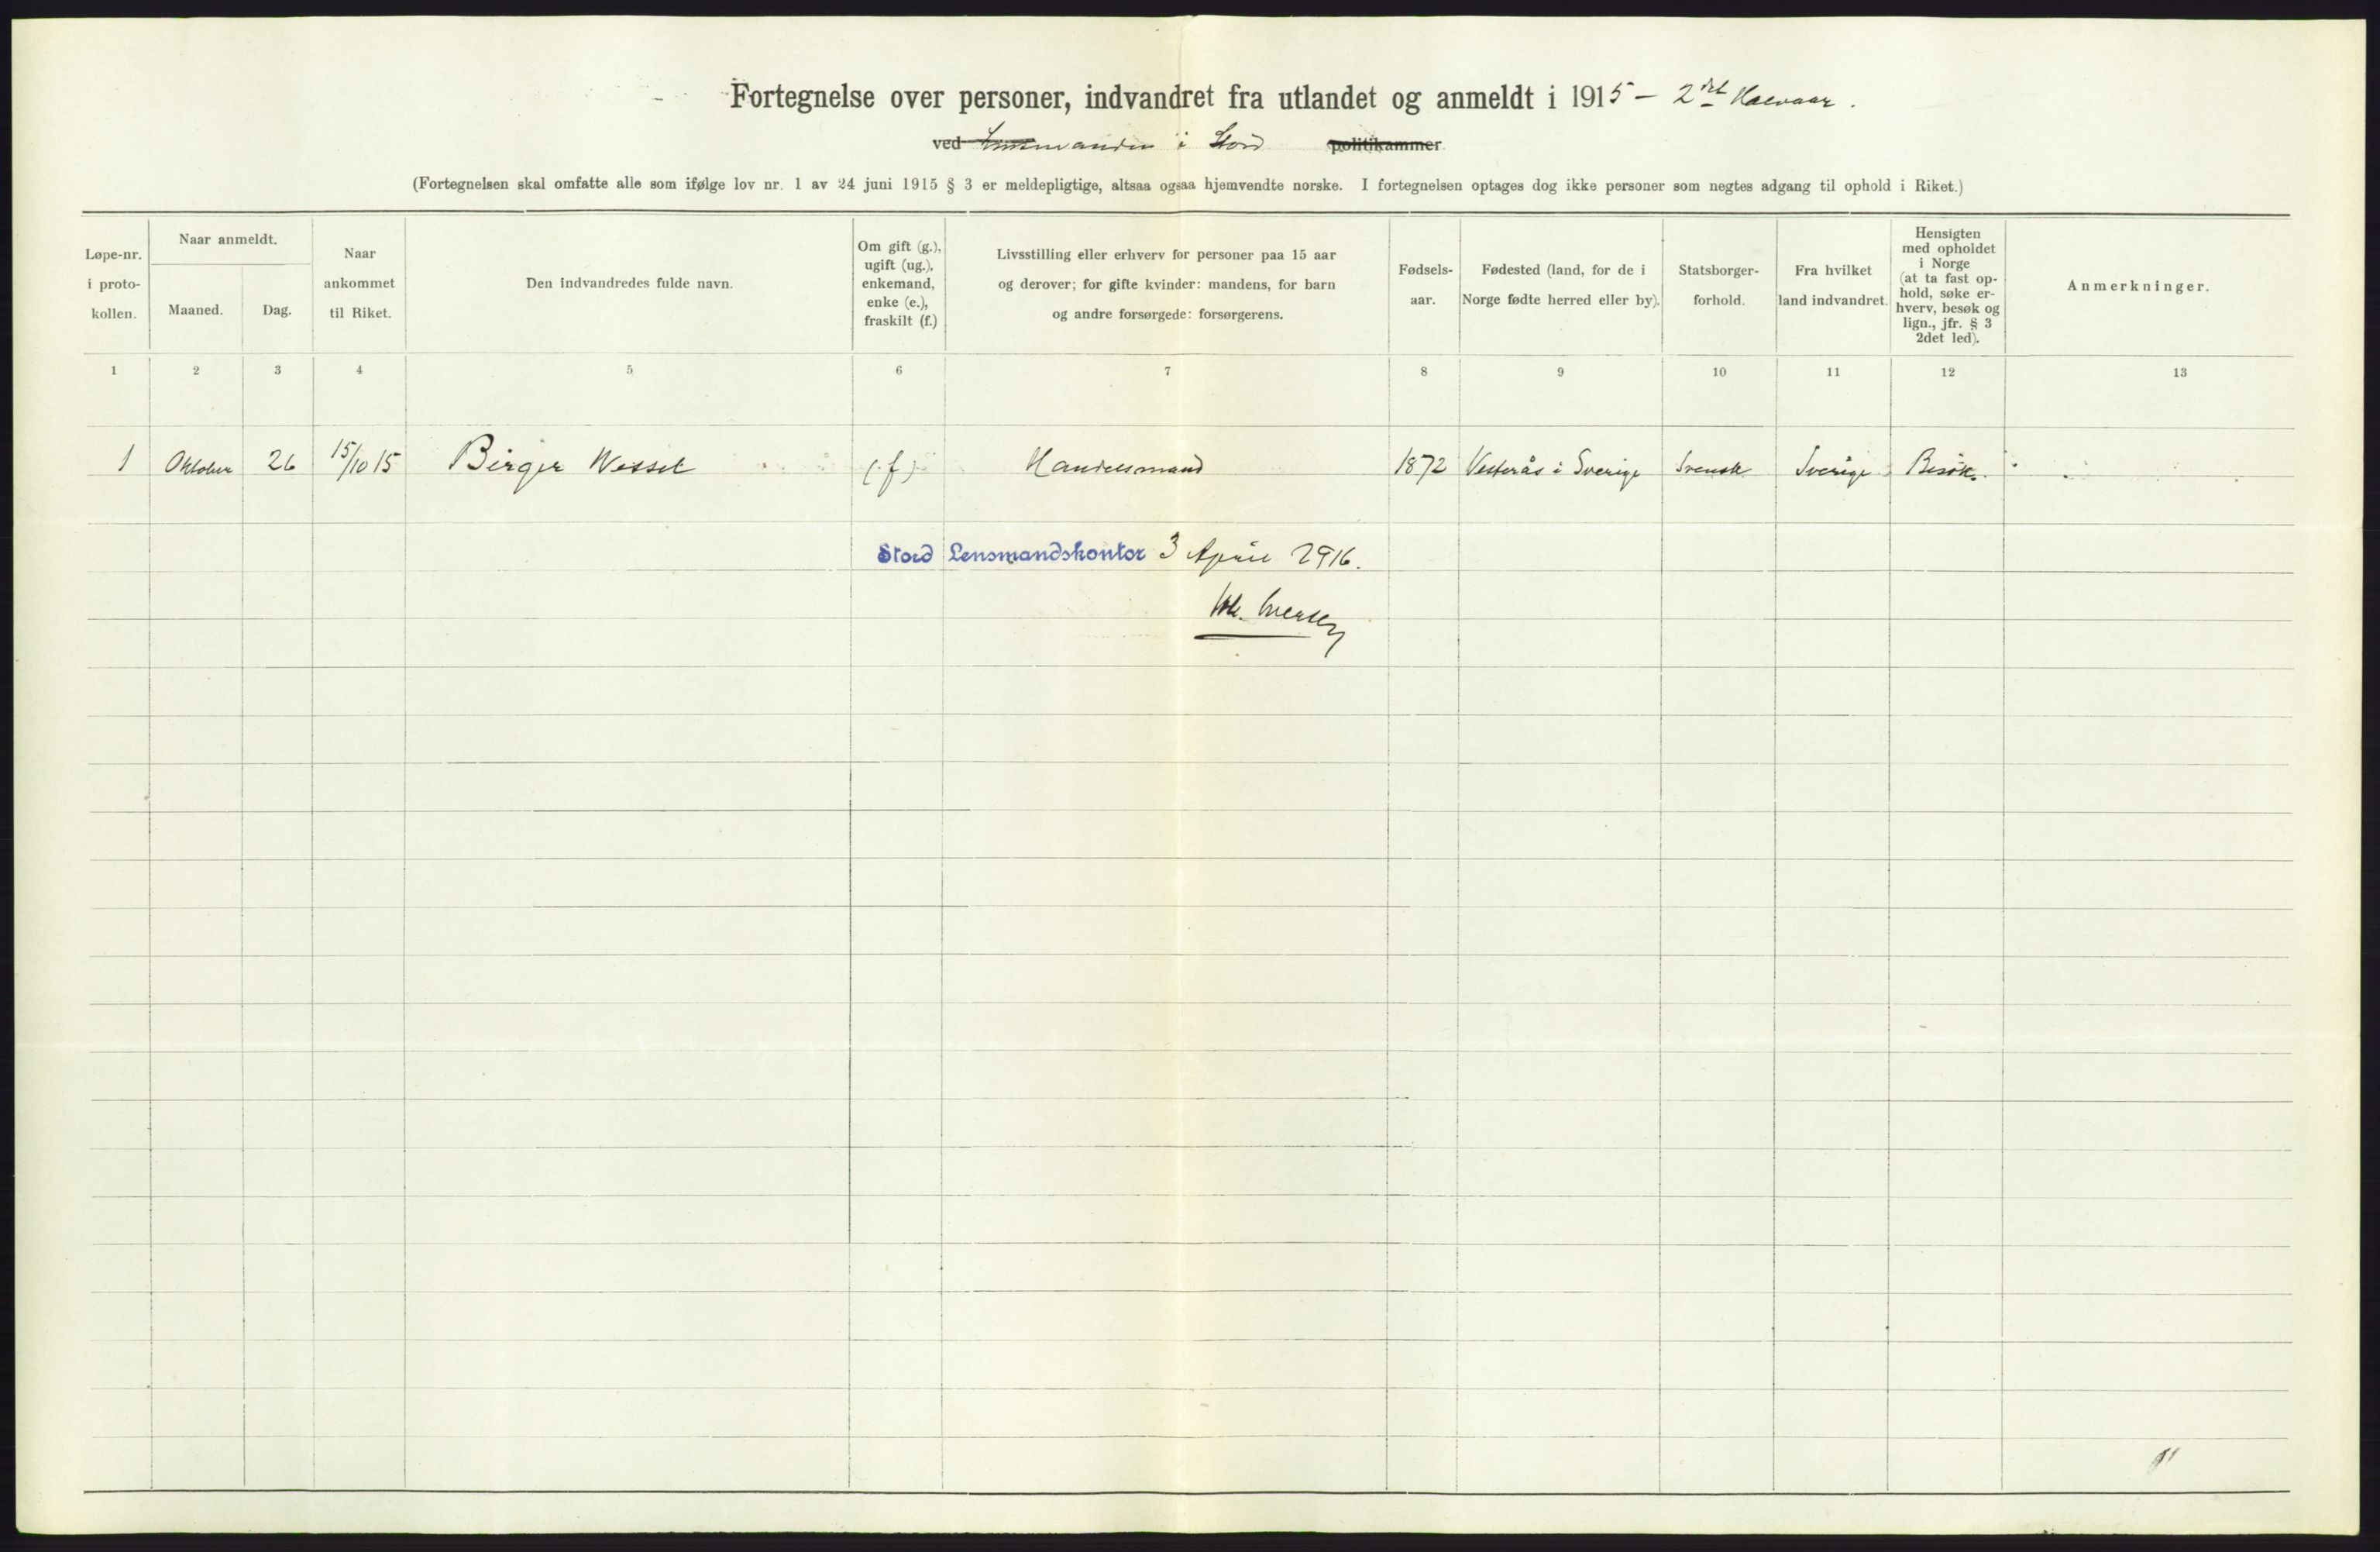 Fortegnelse over personer, indvandret fra utlandet og anmeldt i 1915 - 2det Halvaar.
ved Lensmanden i Stord politikammer.
(Fortegnelsen skal omfatte alle som ifølge lov nr. 1 av 24 juni 1915 § 3 er meldepligtige, altsaa ogsaa hjemvendte norske. I fortegnelsen optages dog ikke personer som negtes adgang til ophold i Riket.)
Løpe-nr.
i proto-
kollen.
Naar anmeldt.
Maaned.
Dag.
Naar
ankommet
til Riket.
Den indvandredes fulde navn.
Om gift (g.),
ugift (ug.),
enkemand,
enke (e.),
fraskilt (f.)
Livsstilling eller erhverv for personer paa 15 aar
og derover; for gifte kvinder: mandens, for barn
og andre forsørgede: forsørgerens.
Fødsels-
aar.
Fødested (land, for de i
Norge fødte herred eller by).
Statsborger-
forhold.
Fra hvilket
land indvandret.
Hensigten
med opholdet
i Norge
(at ta fast op-
hold, søke er-
hverv, besøk og
lign., jfr. § 3
2det led).
Anmerkninger.
1 2 3 4 5 6 7 8 9 10 11 12 13
1 Oktober 26 15/10 15 Birger Wessel (f) Handelsmand 1872 Vesterås i Sverige Svensk Sverige Besök.
Stord Lensmandskontor 3 April 1916.
Iversen